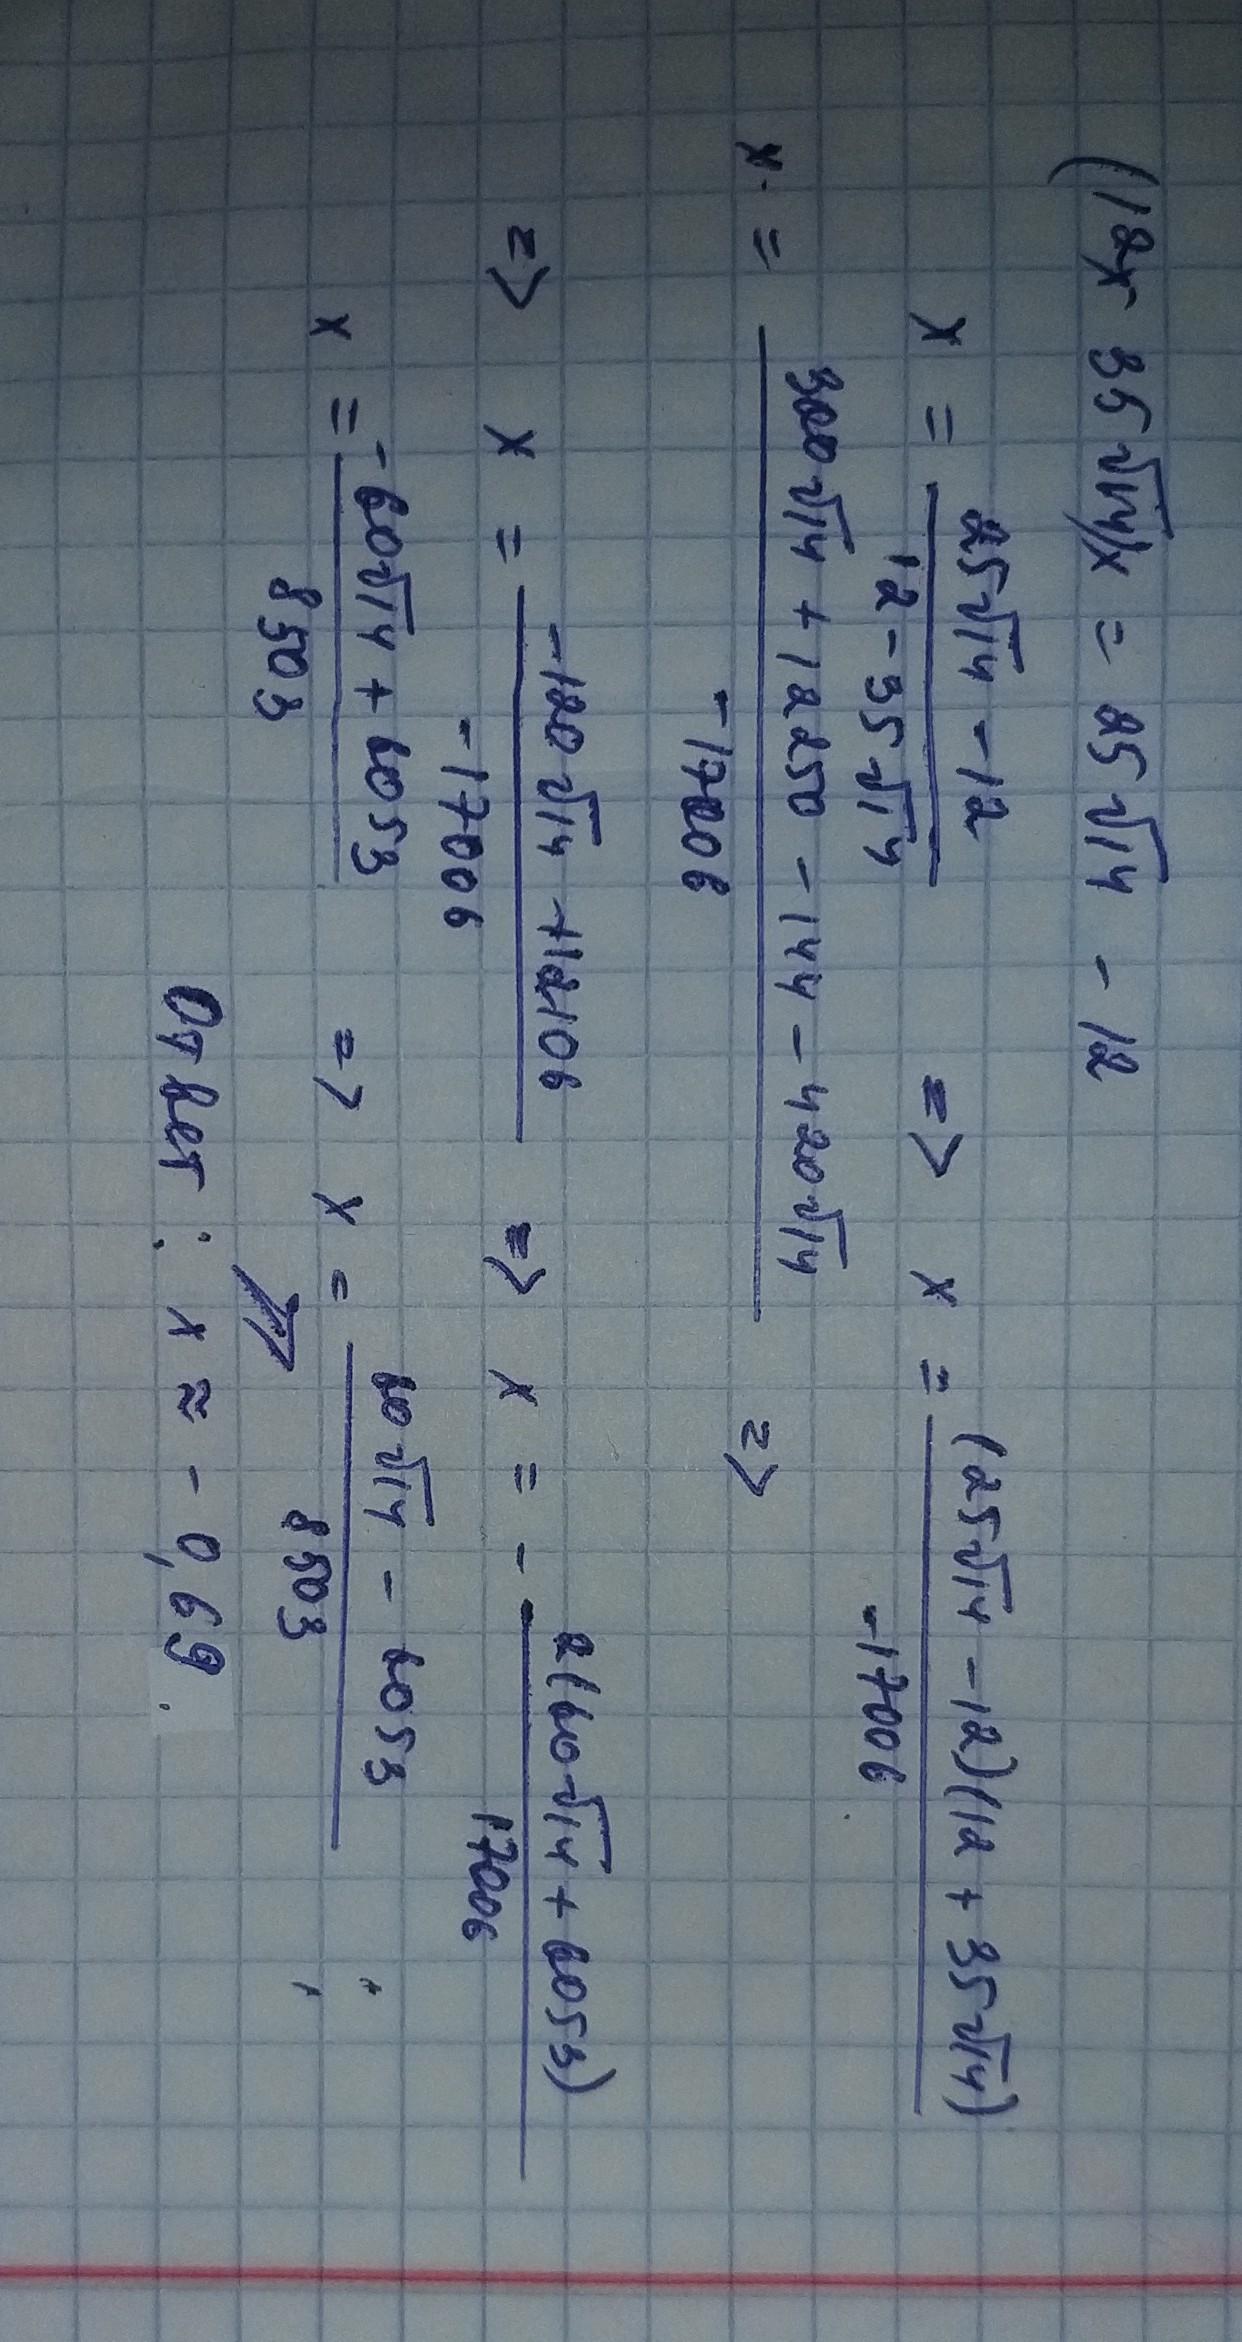 (12x 35√14)x = 25√14 - 12
x = (25√14 - 12)/(12 - 35√14) => x = ((25√14 - 12)(12 + 35√14))/(-17006)
x = (300√14 + 12250 - 144 - 420√14)/(-17006) =>
=> x = (-120√14 + 12106)/(-17006) => x = - (2(60√14 + 6053))/(17006)
x = (-60√14 + 6053)/(8503) => x = (60√14 - 6053)/(8503)
Ответ: x ≈ - 0,69.